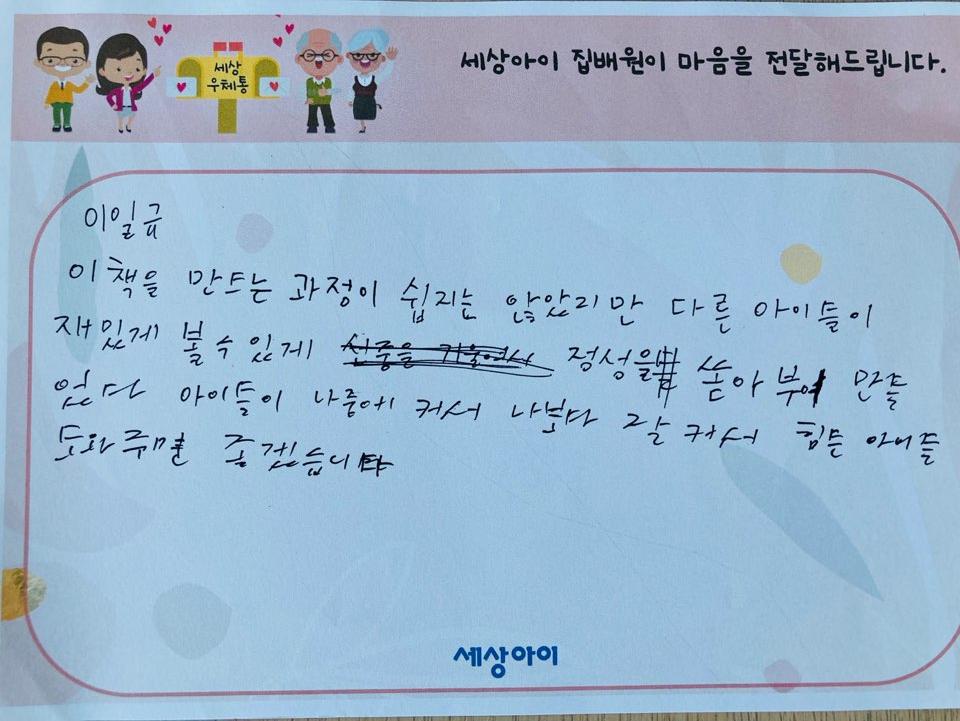 세상
우체통
세상아이 집배원이 마음을 전달해드립니다.
이일규
이 책을 만드는 과정이 쉽지는 않았지만 다른 아이들이
재있게 볼수있게 정성을 쏟아 부어 만들
었다 아이들이 나중에 커서 나보다 잘 커서 힘든 아이들
도와주면 좋겠습니다
세상아이